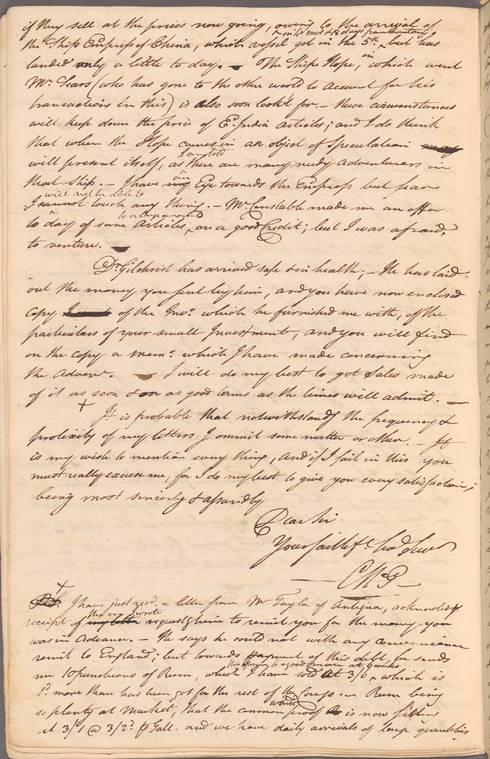 if they sell at the prices now going, owing to the arrival of
the Ship Empress of China, which vessel got in the 5th, but has
in 4 mos 18 days from Canton
landed only a little to day. — The Ship Hope, in which went
Mr. Sears (who has gone to the other world to account for his
transactions in this) is also soon look't for. — these circumstances
will keep down the price of Et. India Articles; and I do think
that when the Hope comes in an object of Speculation
will present itself, as there are many needy Adventurers in
that Ship. — I have my Eye towards the Empress but fear
I cannot touch any thing. — Mr. Constable made me an offer
to day of some Articles, on a good Credit; but I was afraid
to venture. —
Dr. Gilchrist has arrived safe & in health; — He has laid
out the money you sent by him, and you have now enclosed
Copy of the Invo. which he furnished me with, of the
particulars of your small Investment, and you will find
on the copy a memo. which I have made concerning
the Adventr. — I will do my best to get Sales made
of it as soon & on as good terms as the times will admit. —
It is probable that notwithstandg the frequency &
prolixity of my letters I ommit some matter or other. — It
is my wish to mention every thing, and if I fail in this you
must really excuse me, for I do my best to give you every satisfaction;
being most sincerely & assuredly
Dear Sir
Your faithfl. & hble Servt
PS. I have just recd. a letter from Mr Tayler of Antigua, acknowledg
receipt of the one I wrote requestg him to remit you for the money you
was in Advance. — He says he could not with any convenience
remit to England; but towards payment of this debt, he sends
me 10 puncheons of Rum, which I have sold at 3/6, which is
1d. more than had been got for the rest of the Cargo — Rum being
so plenty at Market, that the common proof is now selling
at 3/1 @ 3/2d. p Gall. and we have daily arrivals of large quantities